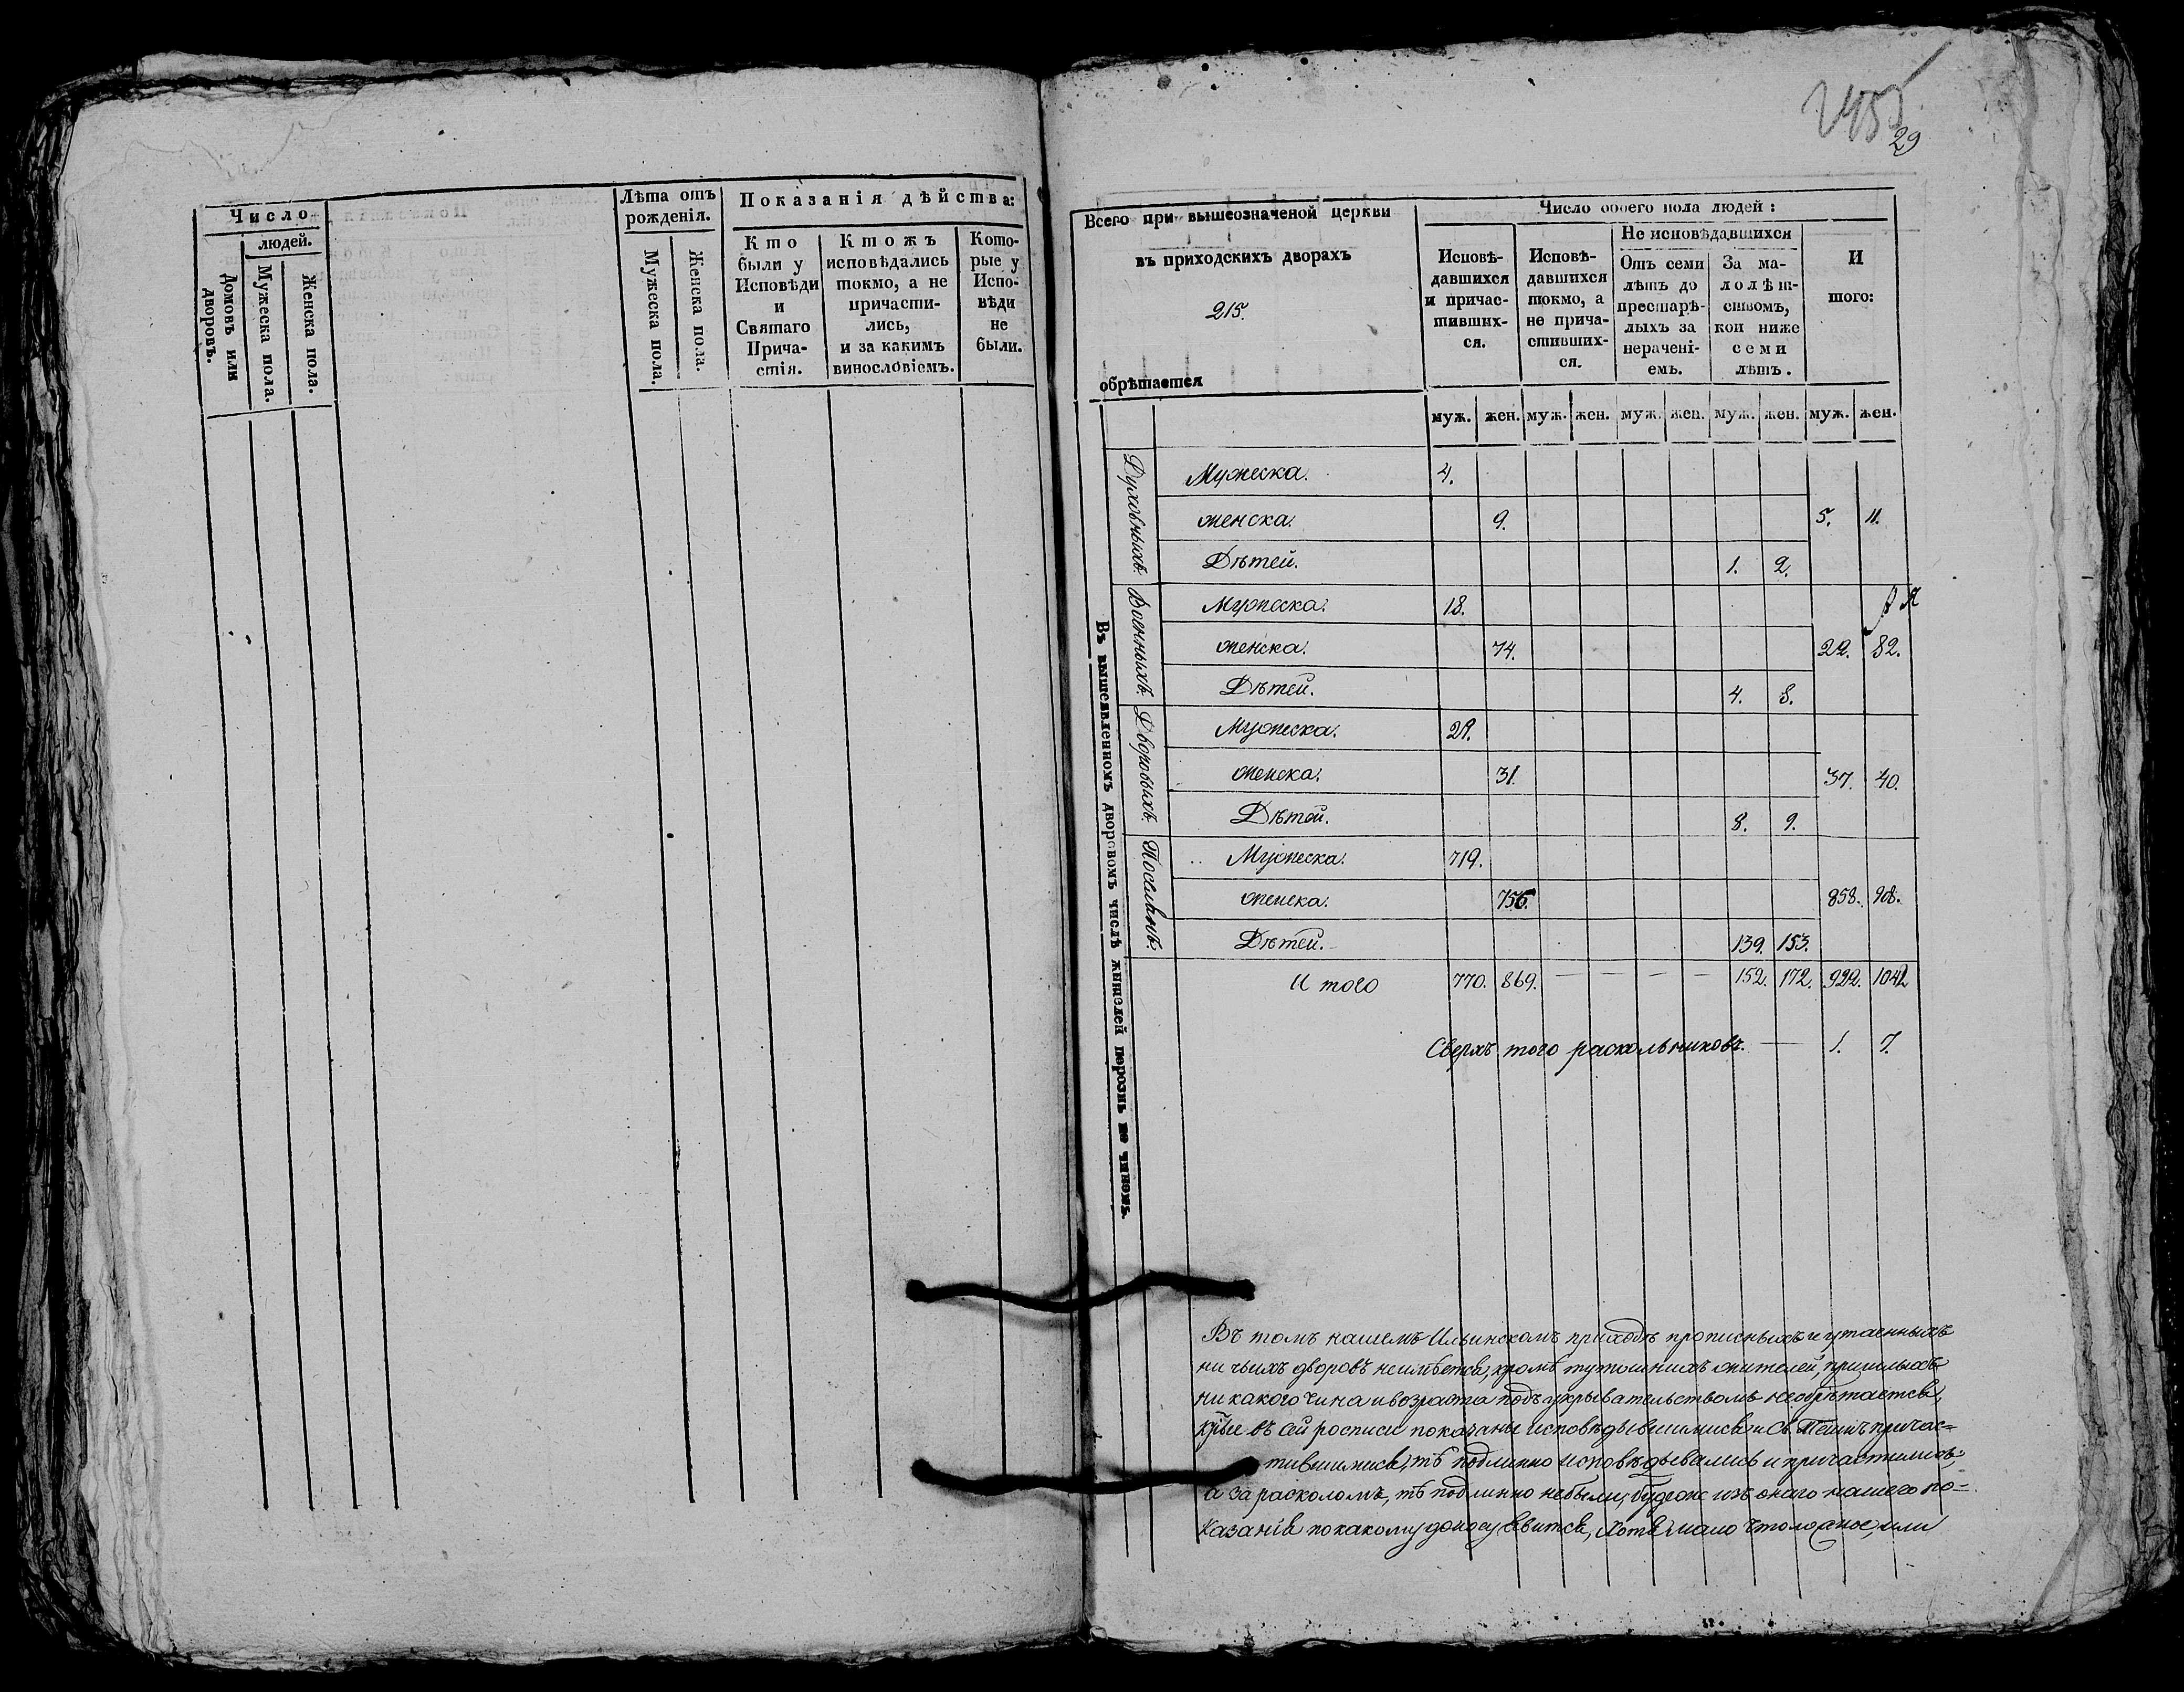 Число
людей.
Домовъ или дворовъ.
Мужеска пола.
Женска пола.
Лѣта отъ рожденія.
Мужеска пола.
Женска пола.
Показанія дѣйства:
Кто были у Исповѣди и Святаго Причастія.
Ктожъ исповѣдались токмо, а не причастились, и за какимъ винословіемъ.
Которые у Исповѣди не были.
2455
29
Всего при вышеозначеной церкви
въ приходскихъ дворахъ
215.
обрѣтается
Число обоего пола людей:
Исповѣ-
давшихся
и причас-
тивших-
ся.
Исповѣ-
давшихся
токмо, а
не прича-
стивших-
ся.
Не исповѣдавшихся
Отъ семи
лѣтъ до
престарѣ-
лыхъ за
нерачені-
емъ.
За ма-
лолѣт-
ствомъ,
кои ниже
семи
лѣтъ.
И
того:
муж. жен. муж. жен. муж. жен. муж. жен. муж. жен.
Въ вышеявленномъ дворовомъ числѣ жителей порознь по чиномъ.
Духовныхъ.
Мужеска. 4.
женска. 9. 5. 11.
Дѣтей. 1. 2.
Военныхъ.
Мужеска. 18.
женска. 74. 22. 82.
Дѣтей. 4. 8.
Дворовыхъ.
Мужеска. 29.
женска. 31. 37. 40.
Дѣтей. 8. 9.
Поселянъ.
Мужеска. 719.
женска. 755. 858. 908.
Дѣтей. 139. 153.
И того 770. 869. — — — — 152. 172. 922. 1041
Сверхъ того раскольниковъ. — 1. 7.
Въ томъ нашемъ Ильинскомъ приходѣ прописныхъ и утаенныхъ
ни чьихъ дворовъ неимѣется, кромѣ тутошнихъ жителей, пришлыхъ
ни какого чина и возраста подъ укрывательствомъ необрѣтается,
кои въ сей росписи показаны исповѣдывшимися и Св. Таинъ причас=
тившимися, тѣ подлинно исповѣдывались и причастились,
а за расколомъ, тѣ подлинно небыли, будеже изъ онаго нашего по=
казанія покакому доносу явится, хотя мало что ложное, или